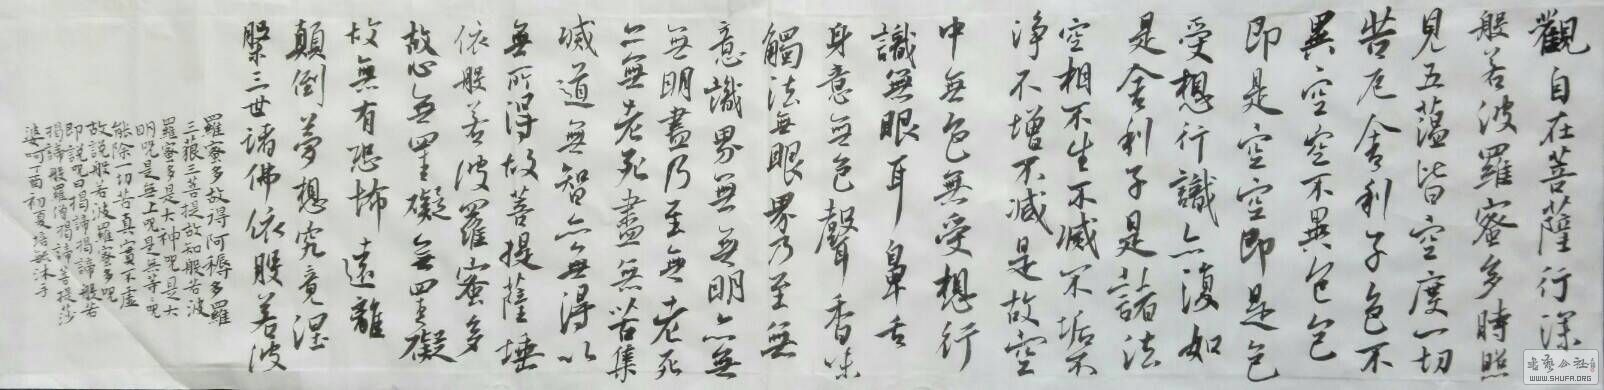 觀自在菩薩行深
般若波羅蜜多時照
見五蕰皆空度一切
苦厄舍利子色不
異空空不異色色
即是空空即是色
受想行識亦復如
是舍利子是諸法
空相不生不滅不垢不
淨不增不減是故空
中無色無受想行
識無眼耳鼻舌
身意無色聲香味
觸法無眼界乃至無
意識界無無明亦無
無明盡乃至無老死
亦無老死盡無苦集
滅道無智亦無得以
無所得故菩提薩埵
依般若波羅蜜多
故心無罣礙無罣礙
故無有恐怖遠離
顛倒夢想究竟涅
槃三世諸佛依般若波
羅蜜多故得阿耨多羅
三藐三菩提故知般若波
羅蜜多是大神咒是大
明咒是無上咒是無等咒
能除一切苦真實不虛
故說般若波羅蜜多咒
即說咒曰揭諦揭諦般若
揭諦般羅僧揭諦菩提莎
婆呵丁酉初夏沐手
WWW.SHUFA.ORG